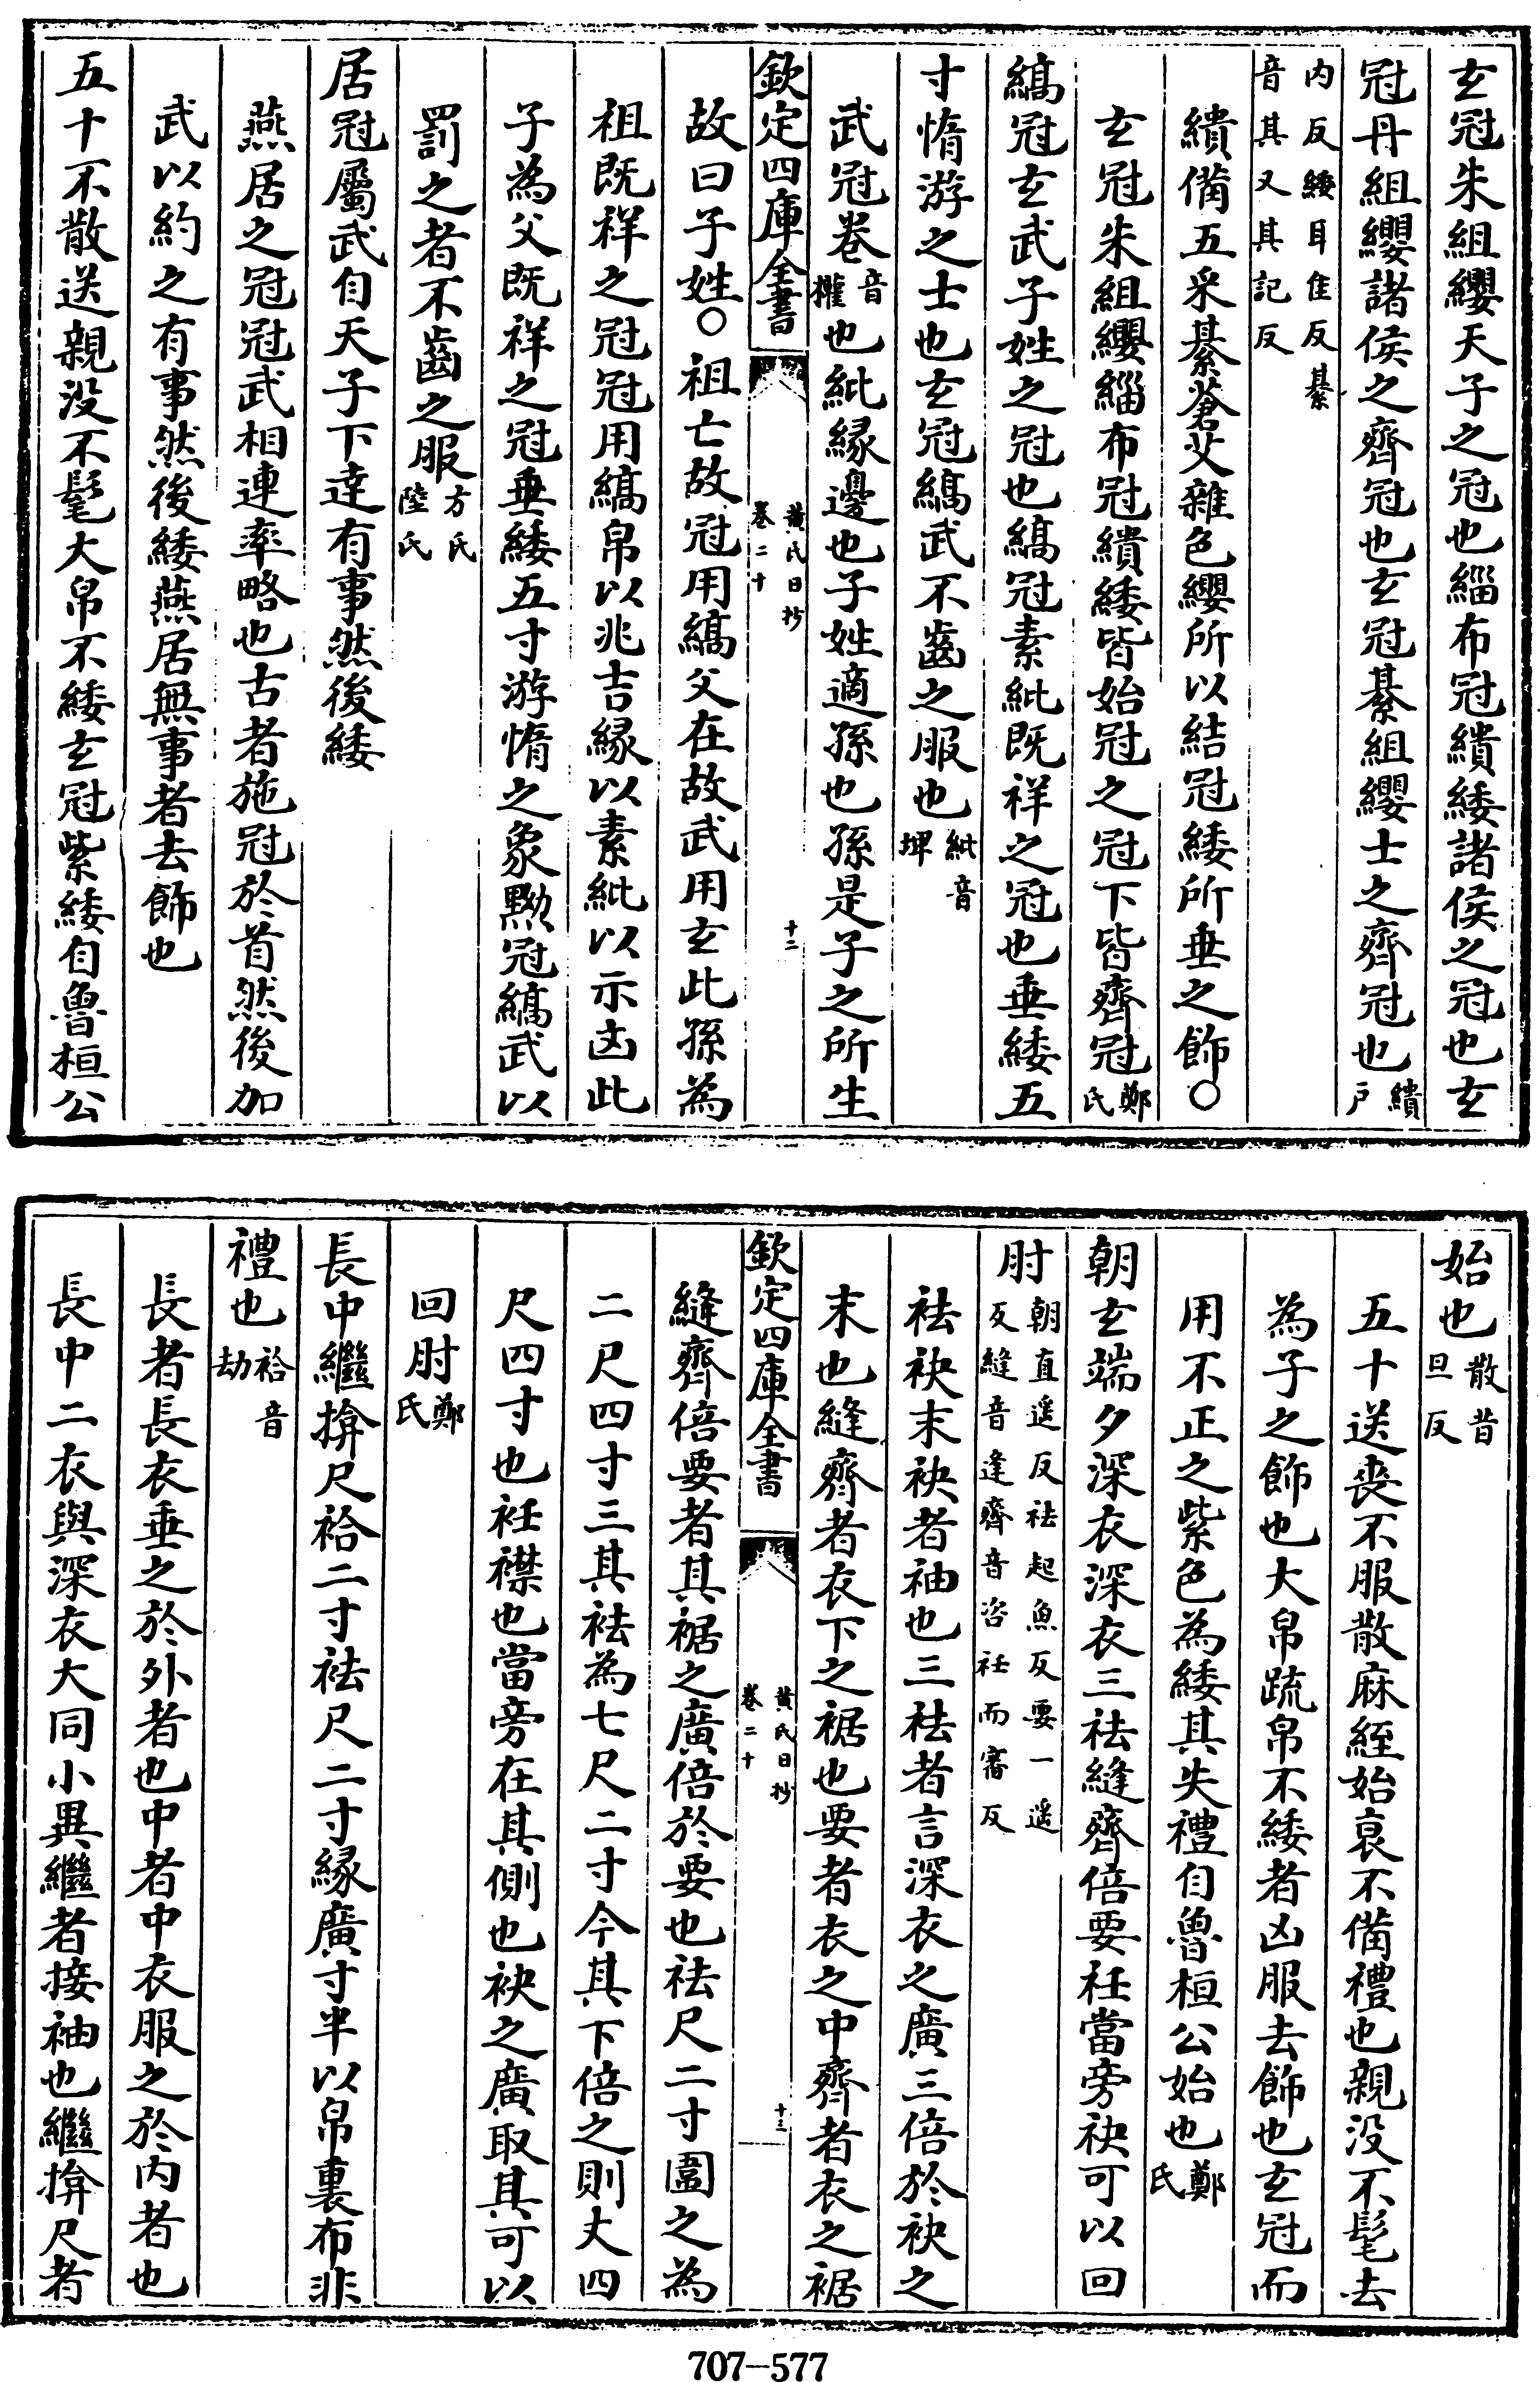 玄冠朱組纓天子之冠也緇布冠繢緌諸侯之冠也玄
冠丹組纓諸侯之齊冠也玄冠綦組纓士之齊冠也繢戶
內反緌耳隹反綦音其又其記反
繢備五采綦蒼艾雜色纓所以結冠緌所垂之飾○
玄冠朱組纓緇布冠繢緌皆始冠之冠下皆齊冠鄭氏
縞冠玄武子姓之冠也縞冠素紕既祥之冠也垂緌五
寸惰游之士也玄冠縞武不齒之服也紕音埤
武冠卷音權也紕緣邊也子姓適孫也孫是子之所生
欽定四庫全書 黃氏日抄卷二十 十二
故曰子姓○祖亡故冠用縞父在故武用玄此孫為
祖既祥之冠冠用縞帛以兆吉緣以素紕以示凶此
子為父既祥之冠垂緌五寸游惰之象黝冠縞武以
罰之者不齒之服方氏陸氏
居冠屬武自天子下達有事然後緌
燕居之冠冠武相連率略也古者施冠於首然後加
武以約之有事然後緌燕居無事者去飾也
五十不散送親没不髦大帛不緌玄冠紫緌自魯桓公
始也散昔旦反
五十送喪不服散麻絰始衰不備禮也親没不髦去
為子之飾也大帛疏帛不緌者凶服去飾也玄冠而
用不正之紫色為緌其失禮自魯桓公始也鄭氏
朝玄端夕深衣深衣三袪縫齊倍要衽當旁袂可以回
肘朝直遥反袪起魚反要一遥反縫音逢齊音咨衽而審反
袪袂末袂者袖也三袪者言深衣之廣三倍於袂之
末也縫齊者衣下之裾也要者衣之中齊者衣之裾
欽定四庫全書 黃氏日抄卷二十 十三
縫齊倍要者其裾之廣倍於要也袪尺二寸圍之為
二尺四寸三其袪為七尺二寸今其下倍之則丈四
尺四寸也衽襟也當旁在其側也袂之廣取其可以
回肘鄭氏
長中繼揜尺袷二寸袪尺二寸緣廣寸半以帛裏布非
禮也袷音劫
長者長衣垂之於外者也中者中衣服之於內者也
長中二衣與深衣大同小異繼者接袖也繼揜尺者
707—577